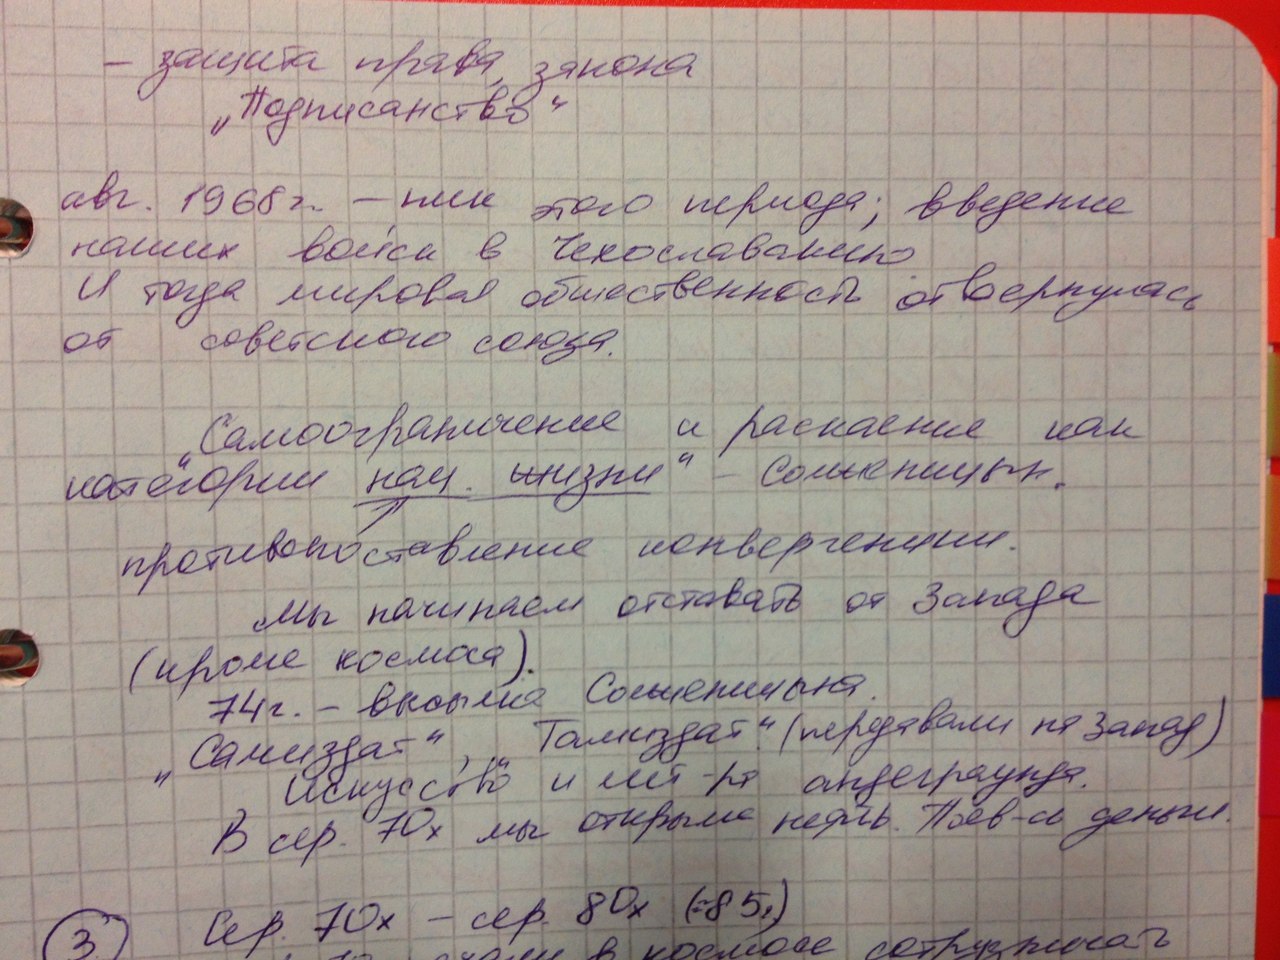 – защита права, закона
„Подписанство“
авг. 1968г. – пик этого периода; введение
наших войск в Чехославакию
И тогда мировая общественность отвоернулась
от советского союза.
„Самоограничение и раскаение как
категории нац. жизни“ – Солженицын.
противопоставление конвергенции.
Мы начинаем отставать от Запада
(кроме космоса).
74г. – высылка Солженицына.
„Самиздат“, „Тамиздат“ (передавали на Запад)
Искусство и лит-ра андеграунда.
В сер. 70х мы открыли нефть. Появ-сь деньги.
3. Сер. 70х – сер. 80х (=85г)
в космосе сотрудничать